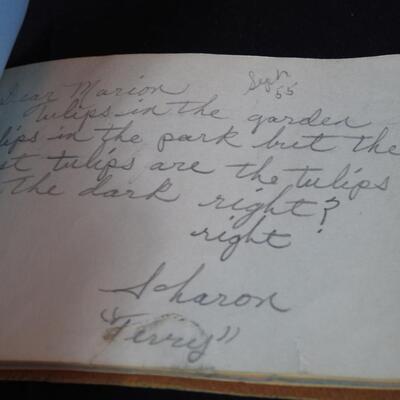 Dear Marion
Sept
55
tulips in the garden
lips in the park but the
st tulips are the tulips
the dark right?
right!
Scharon
"Terry"